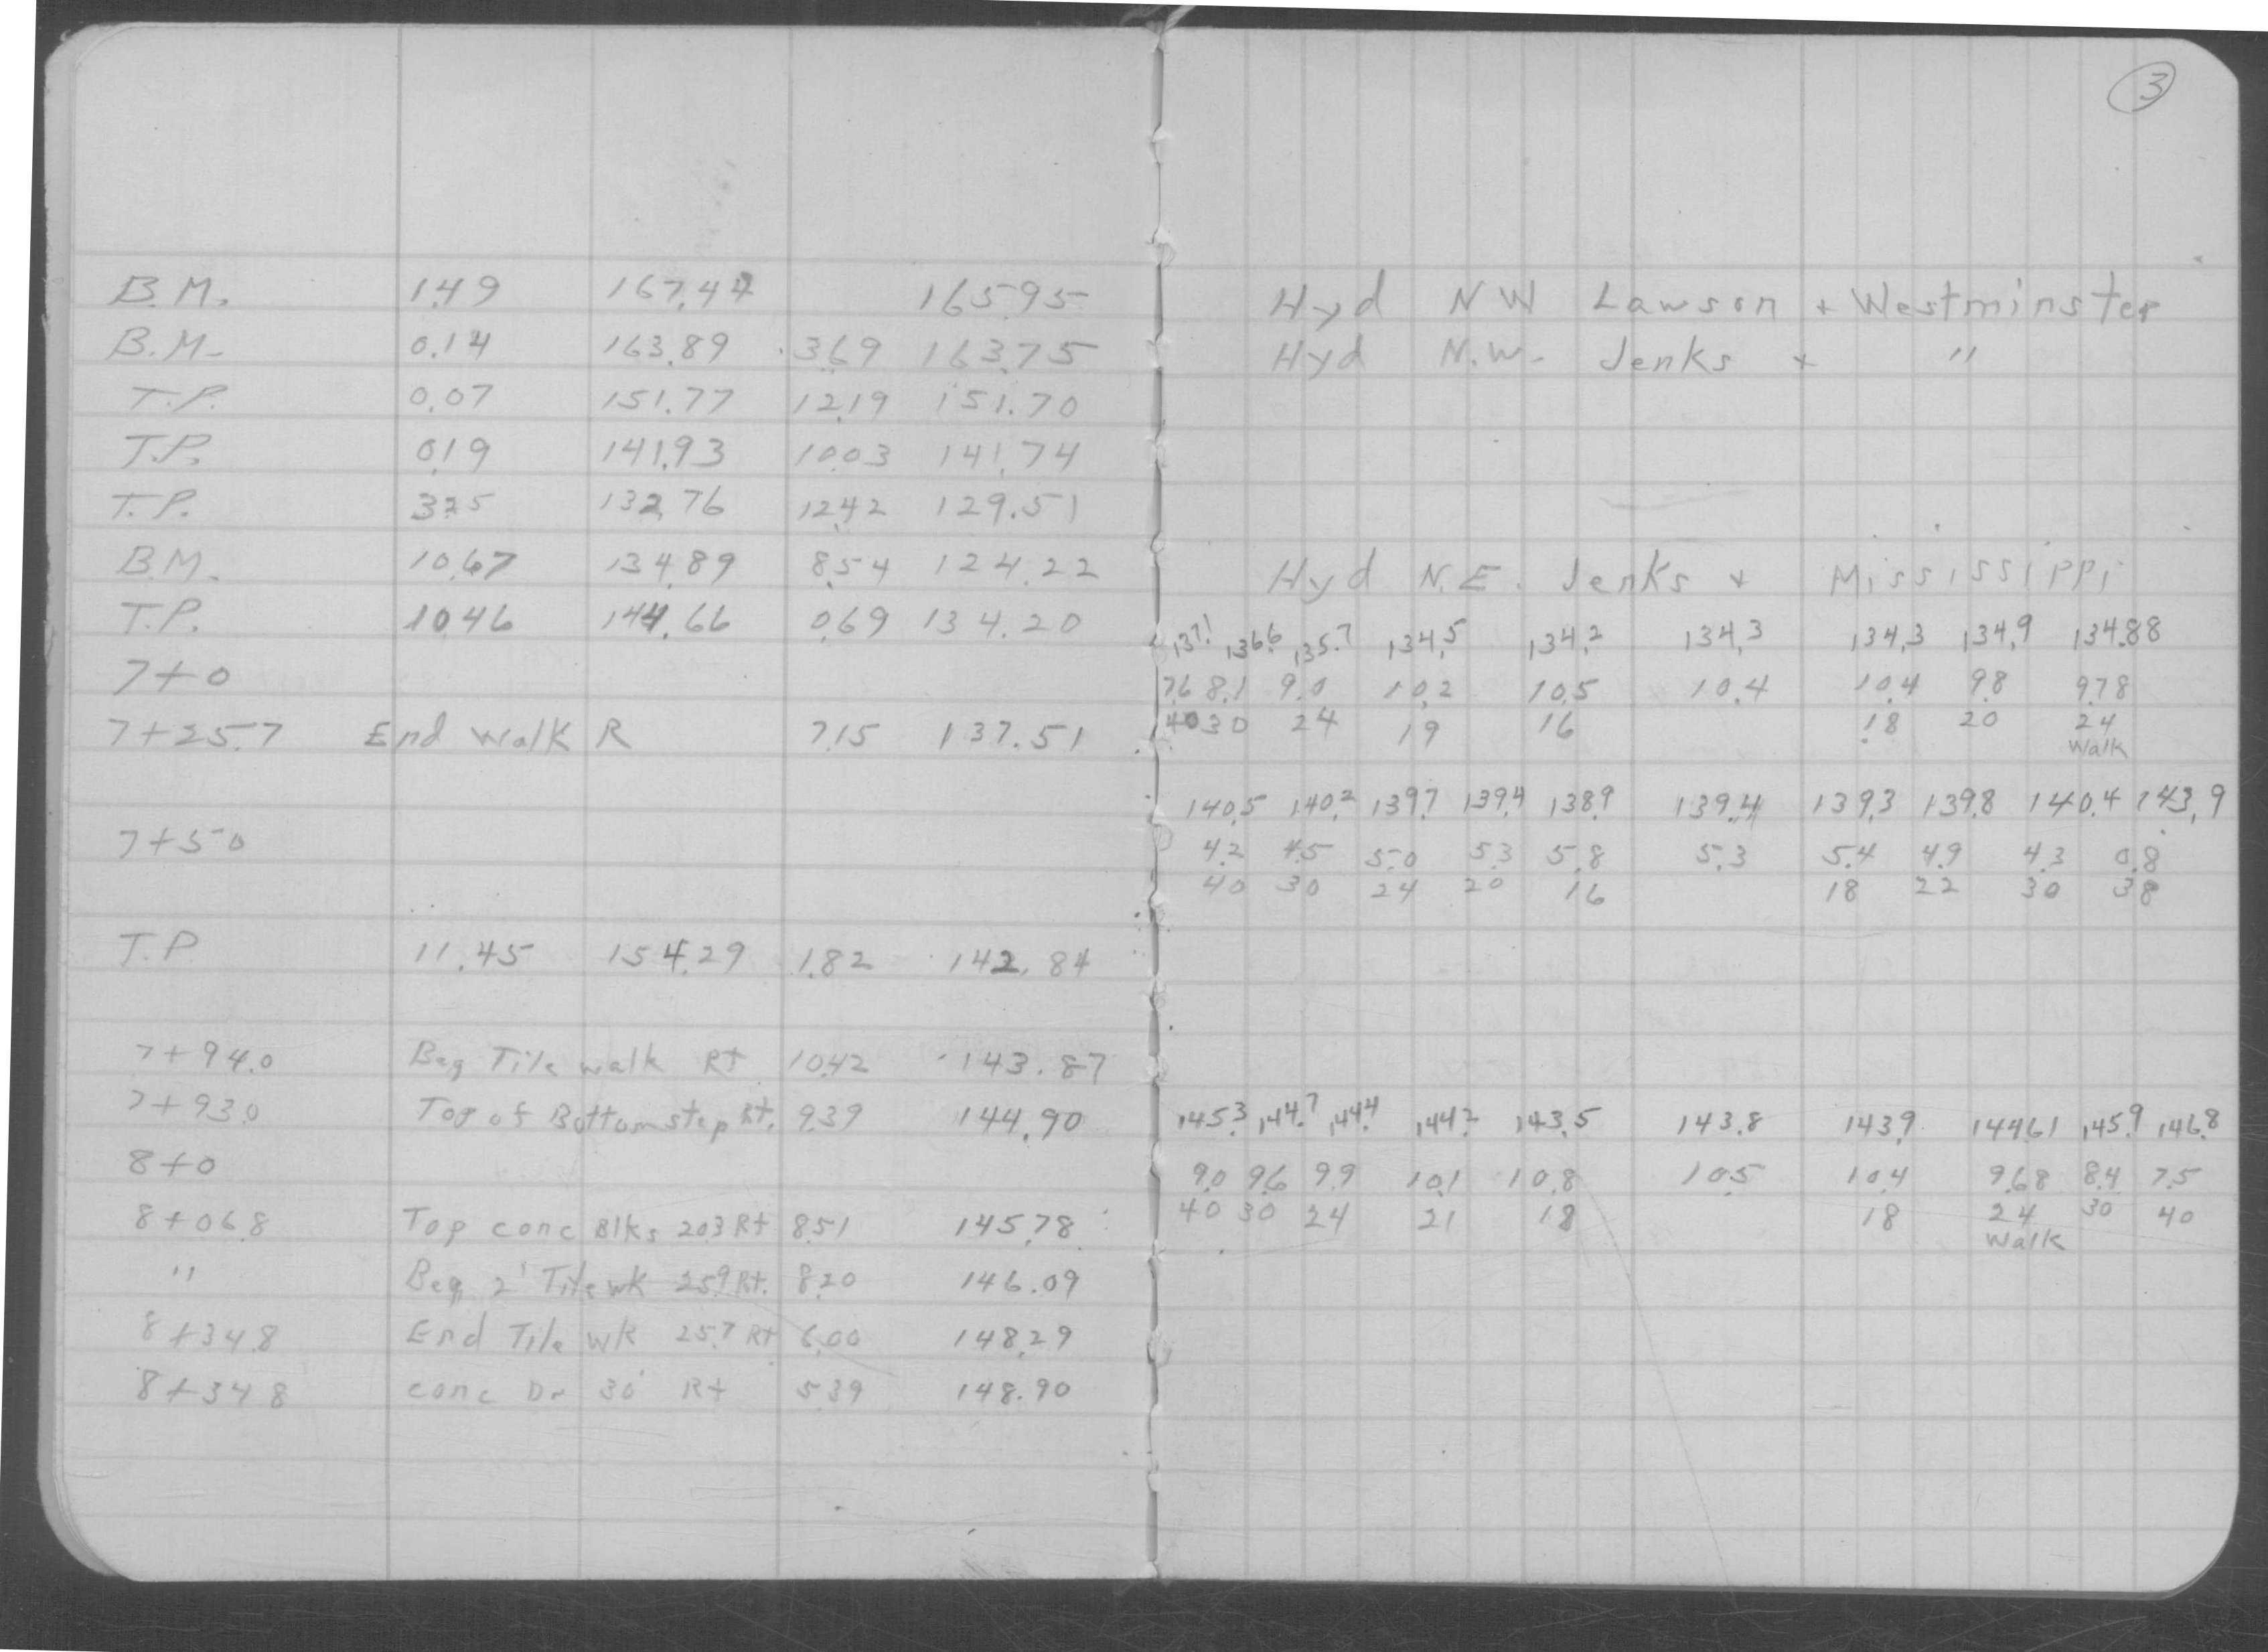 3
B.M. 1.49 167.44 165.95 Hyd NW Lawson + Westminster
B.M. 0.14 163.89 3.69 163.75 Hyd N.W. Jenks + "
T.P. 0.07 151.77 12.19 151.70
T.P. 0.19 141.93 10.03 141.74
T.P. 3.25 132.76 12.42 129.51
B.M. 10.67 134.89 8.54 124.22 Hyd N.E. Jenks + Mississippi
T.P. 10.46 144.66 0.69 134.20 137.1 136.6 135.7 134.5 134.2 134.3 134.3 134.9 134.88
7+0 7.6 8.1 9.0 10.2 10.5 10.4 10.4 9.8 9.78
7+25.7 End Walk R 7.15 137.51 40 30 24 19 16 18 20 24
Walk
140.5 140.2 139.7 139.4 138.9 139.4 139.3 139.8 140.4 143.9
7+50 4.2 4.5 5.0 5.3 5.8 5.3 5.4 4.9 4.3 0.8
40 30 24 20 16 18 22 30 38
T.P. 11.45 154.29 1.82 142.84
7+94.0 Beg Tile walk Rt 10.42 143.87
7+93.0 Top of Bottom step Rt. 9.39 144.90 145.3 144.7 144.4 144.2 143.5 143.8 143.9 144.61 145.9 146.8
8+0 9.0 9.6 9.9 10.1 10.8 10.5 10.4 9.68 8.4 7.5
8+06.8 Top conc Blks 20.3 Rt 8.51 145.78 40 30 24 21 18 18 24 30 40
Walk
" Beg 2' Tile wk 25.9 Rt. 8.20 146.09
8+34.8 End Tile wk 25.7 Rt 6.00 148.29
8+34.8 conc Dr 30' Rt 5.39 148.90